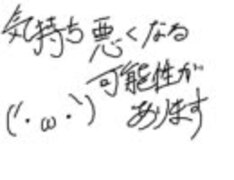 気持ち悪くなる
可能性が
(´・ω・`)
あります